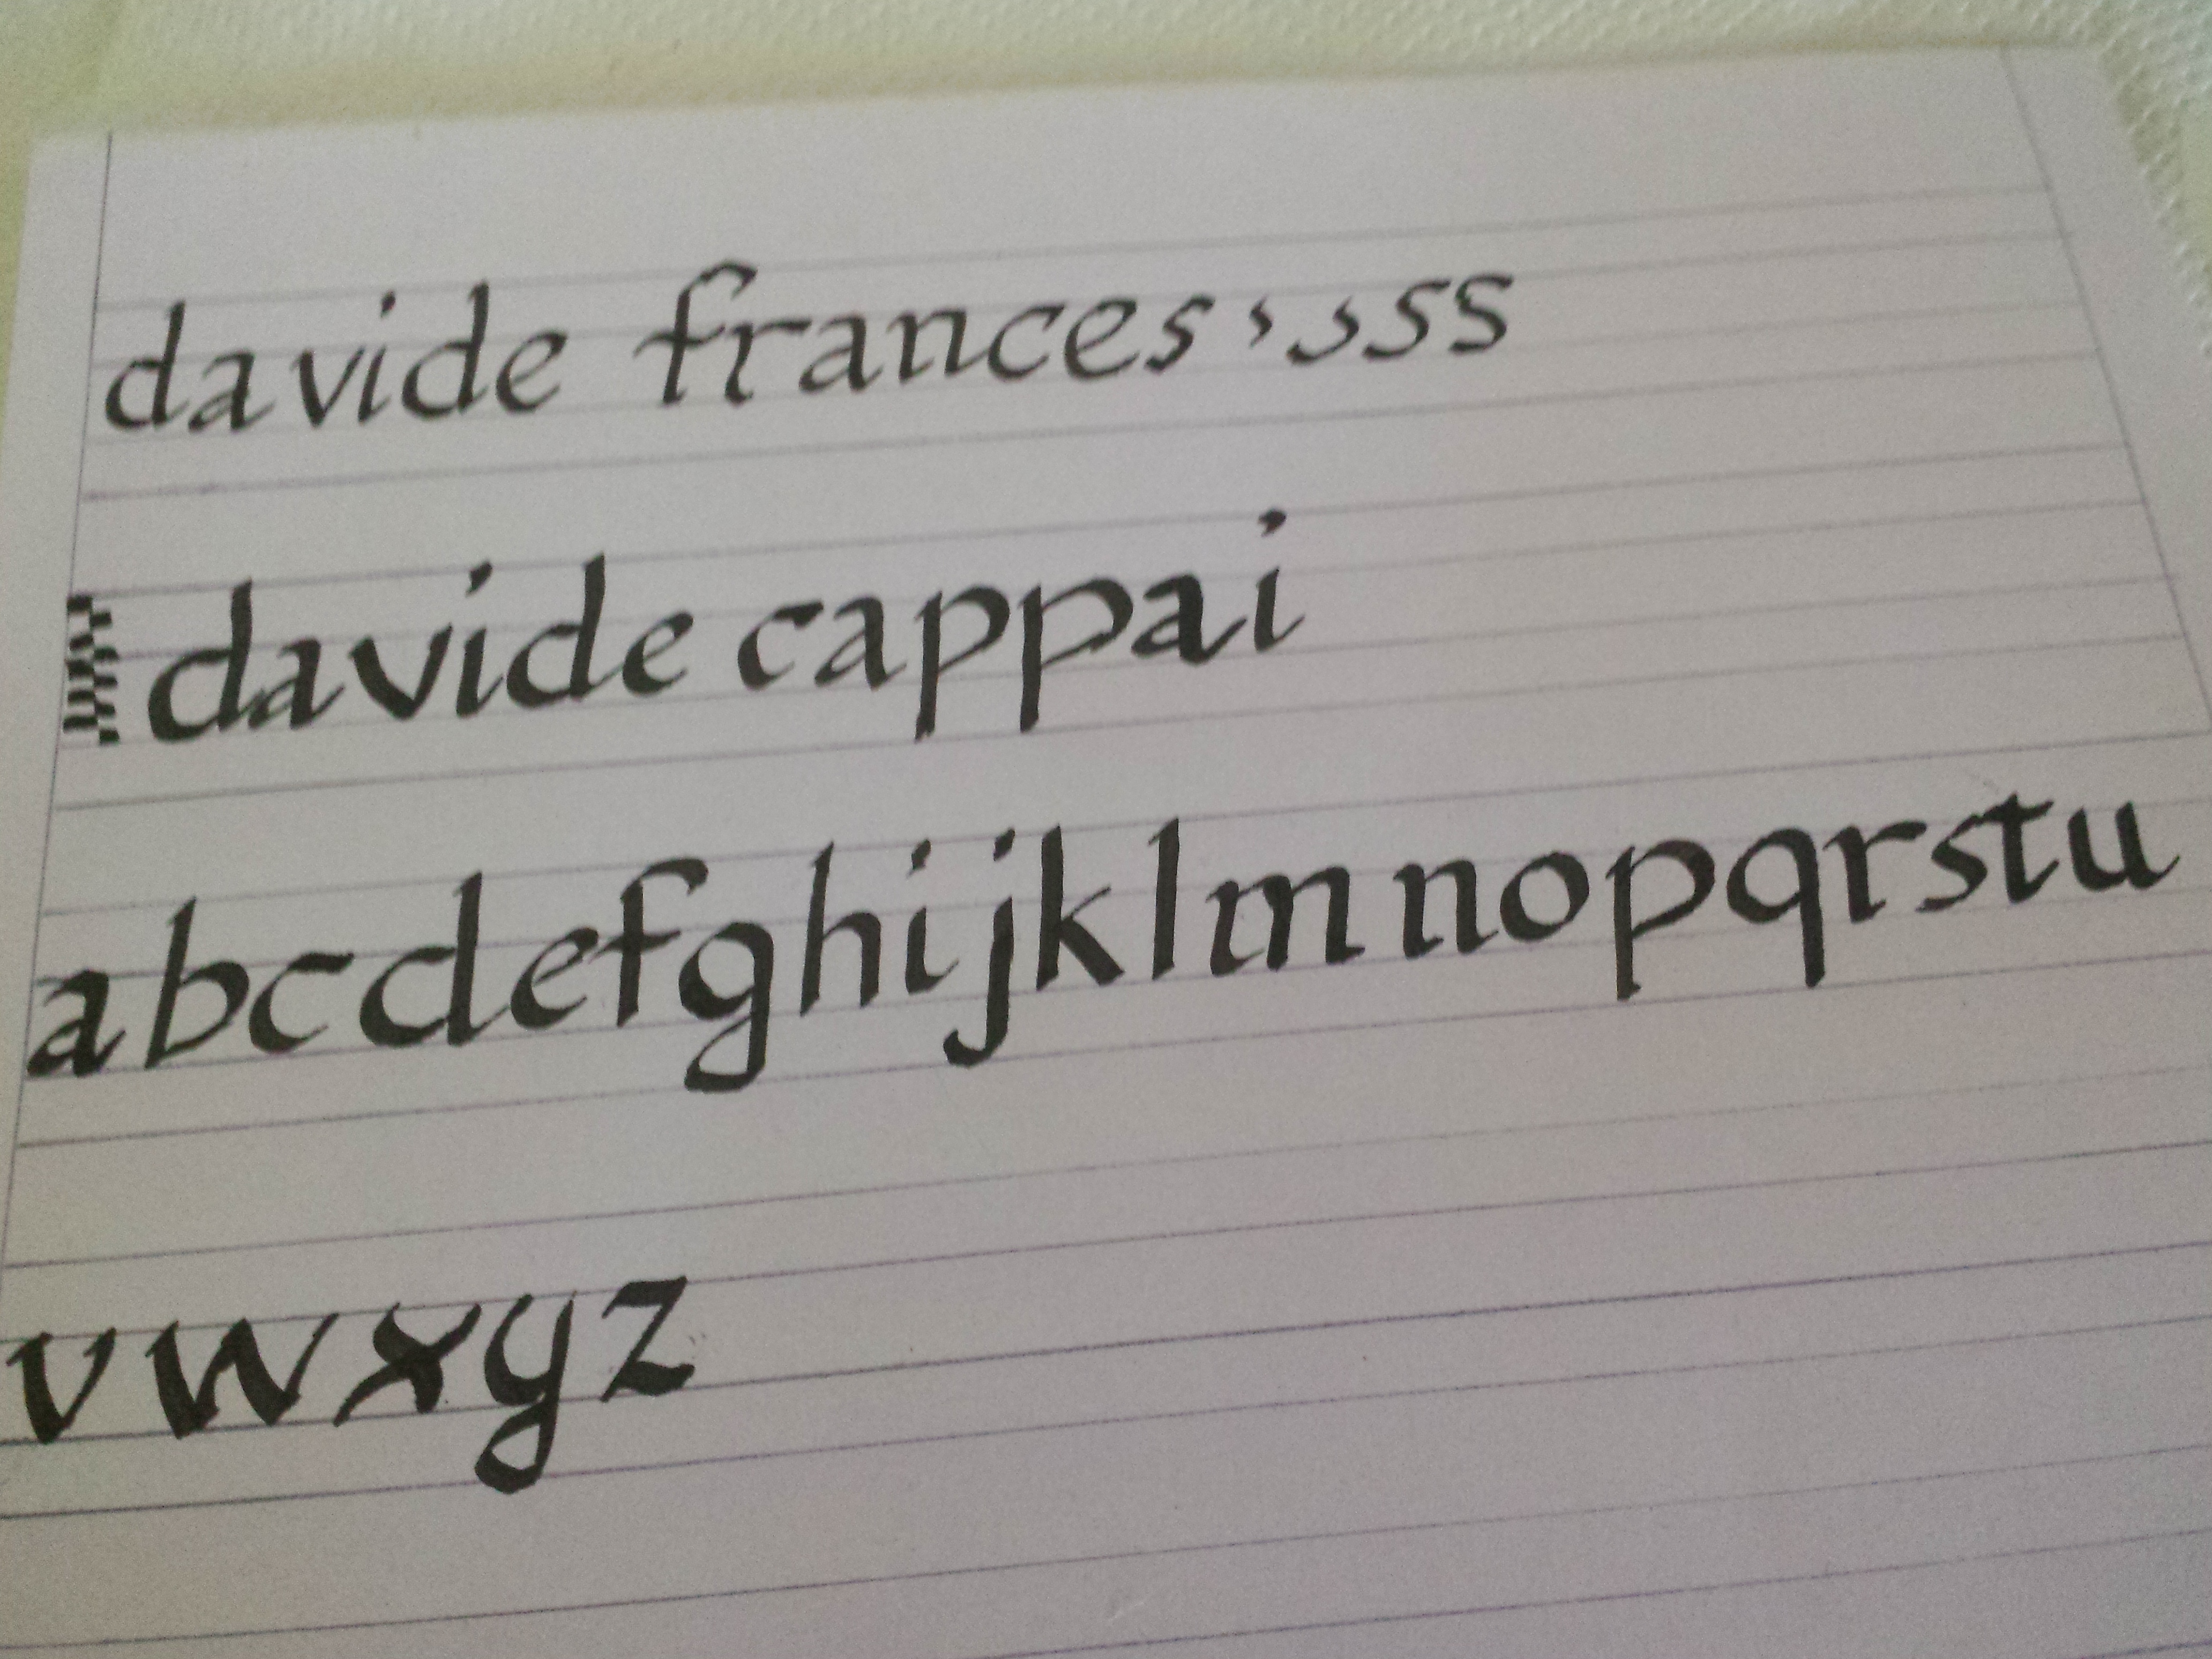 davide frances s s
davide cappai
abcdefghijklmnopqrstu
vwxyz